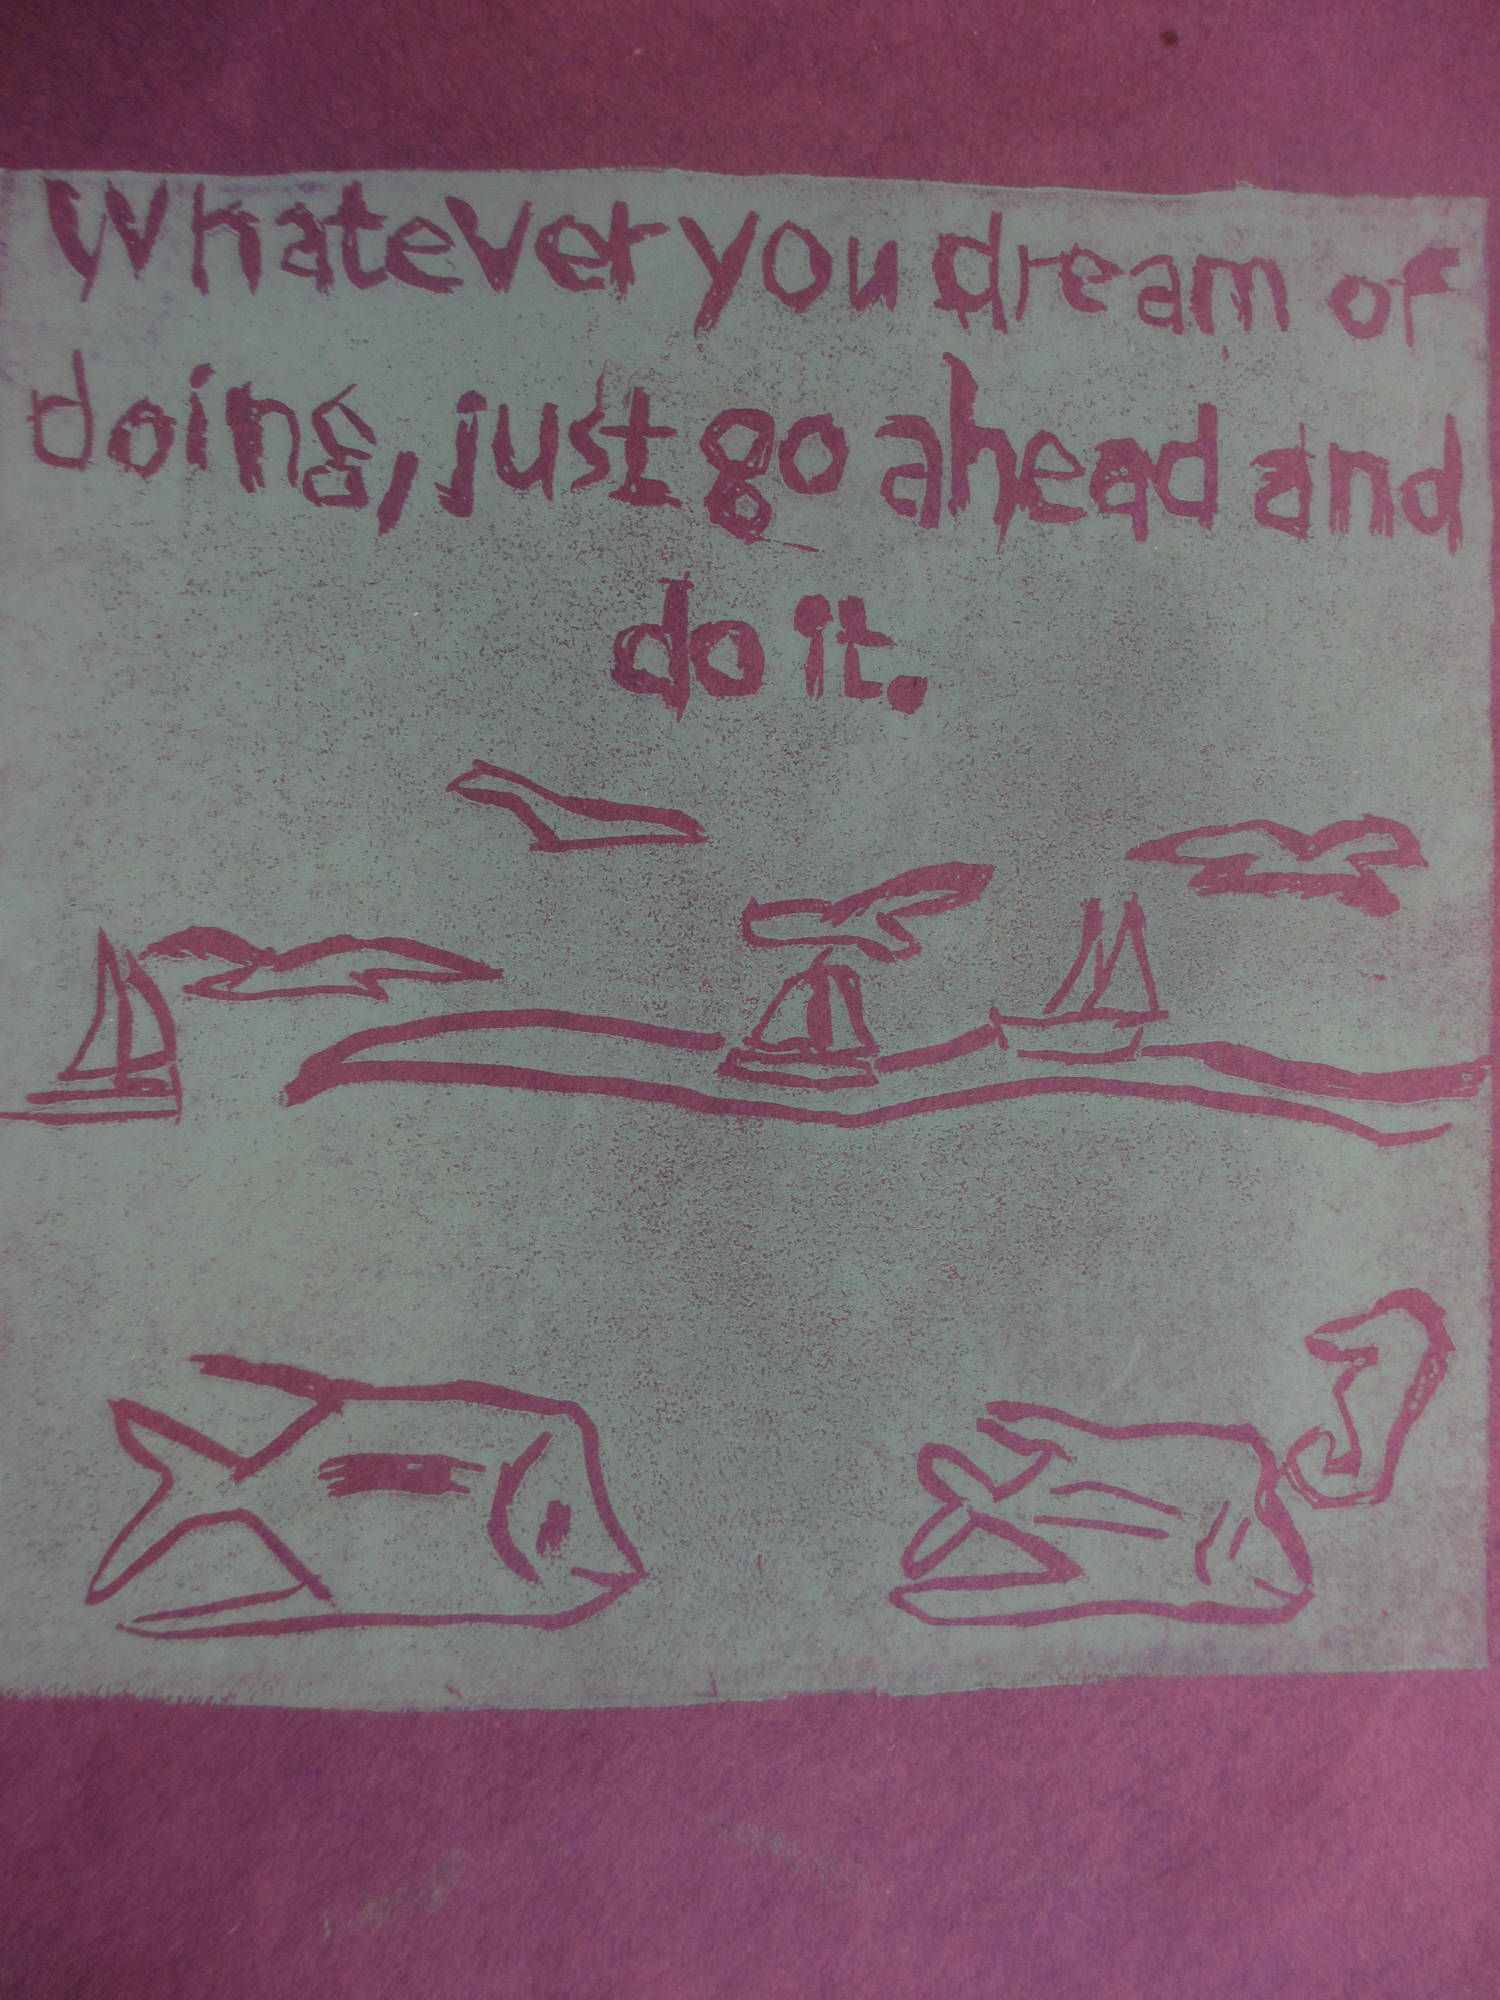 Whatever you dream of
doing, just go ahead and
do it.